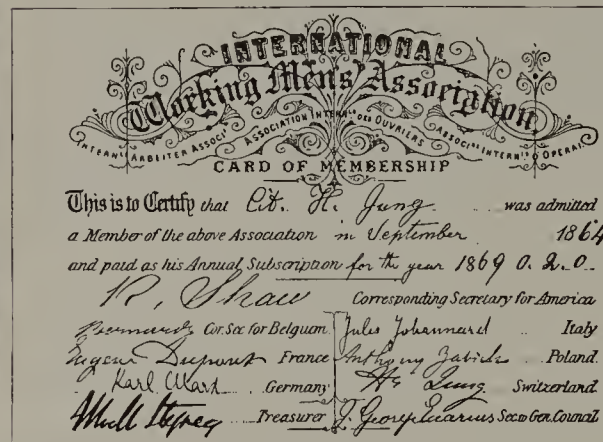 INTERNATIONAL
Working Men's Association
INTERNLE ARBEITER ASSOCN ASSOCIATION INTERNLE DES OUVRIERS ASSOCNE INTERNLE D OPERAI
CARD OF MEMBERSHIP
This is to Certify that Cit. H. Jung was admitted
a Member of the above Association in September 1864
and paid as his Annual Subscription for the year 1869 0.2.0.
R. Shaw Corresponding Secretary for America
Bernard Cor. Sec. for Belgium Jules Johannard Italy
Eugene Dupont France Anthony Zabicki Poland.
Karl Marx Germany H. Jung Switzerland.
Treasurer J. George Eccarius Sec to Gen. Council.